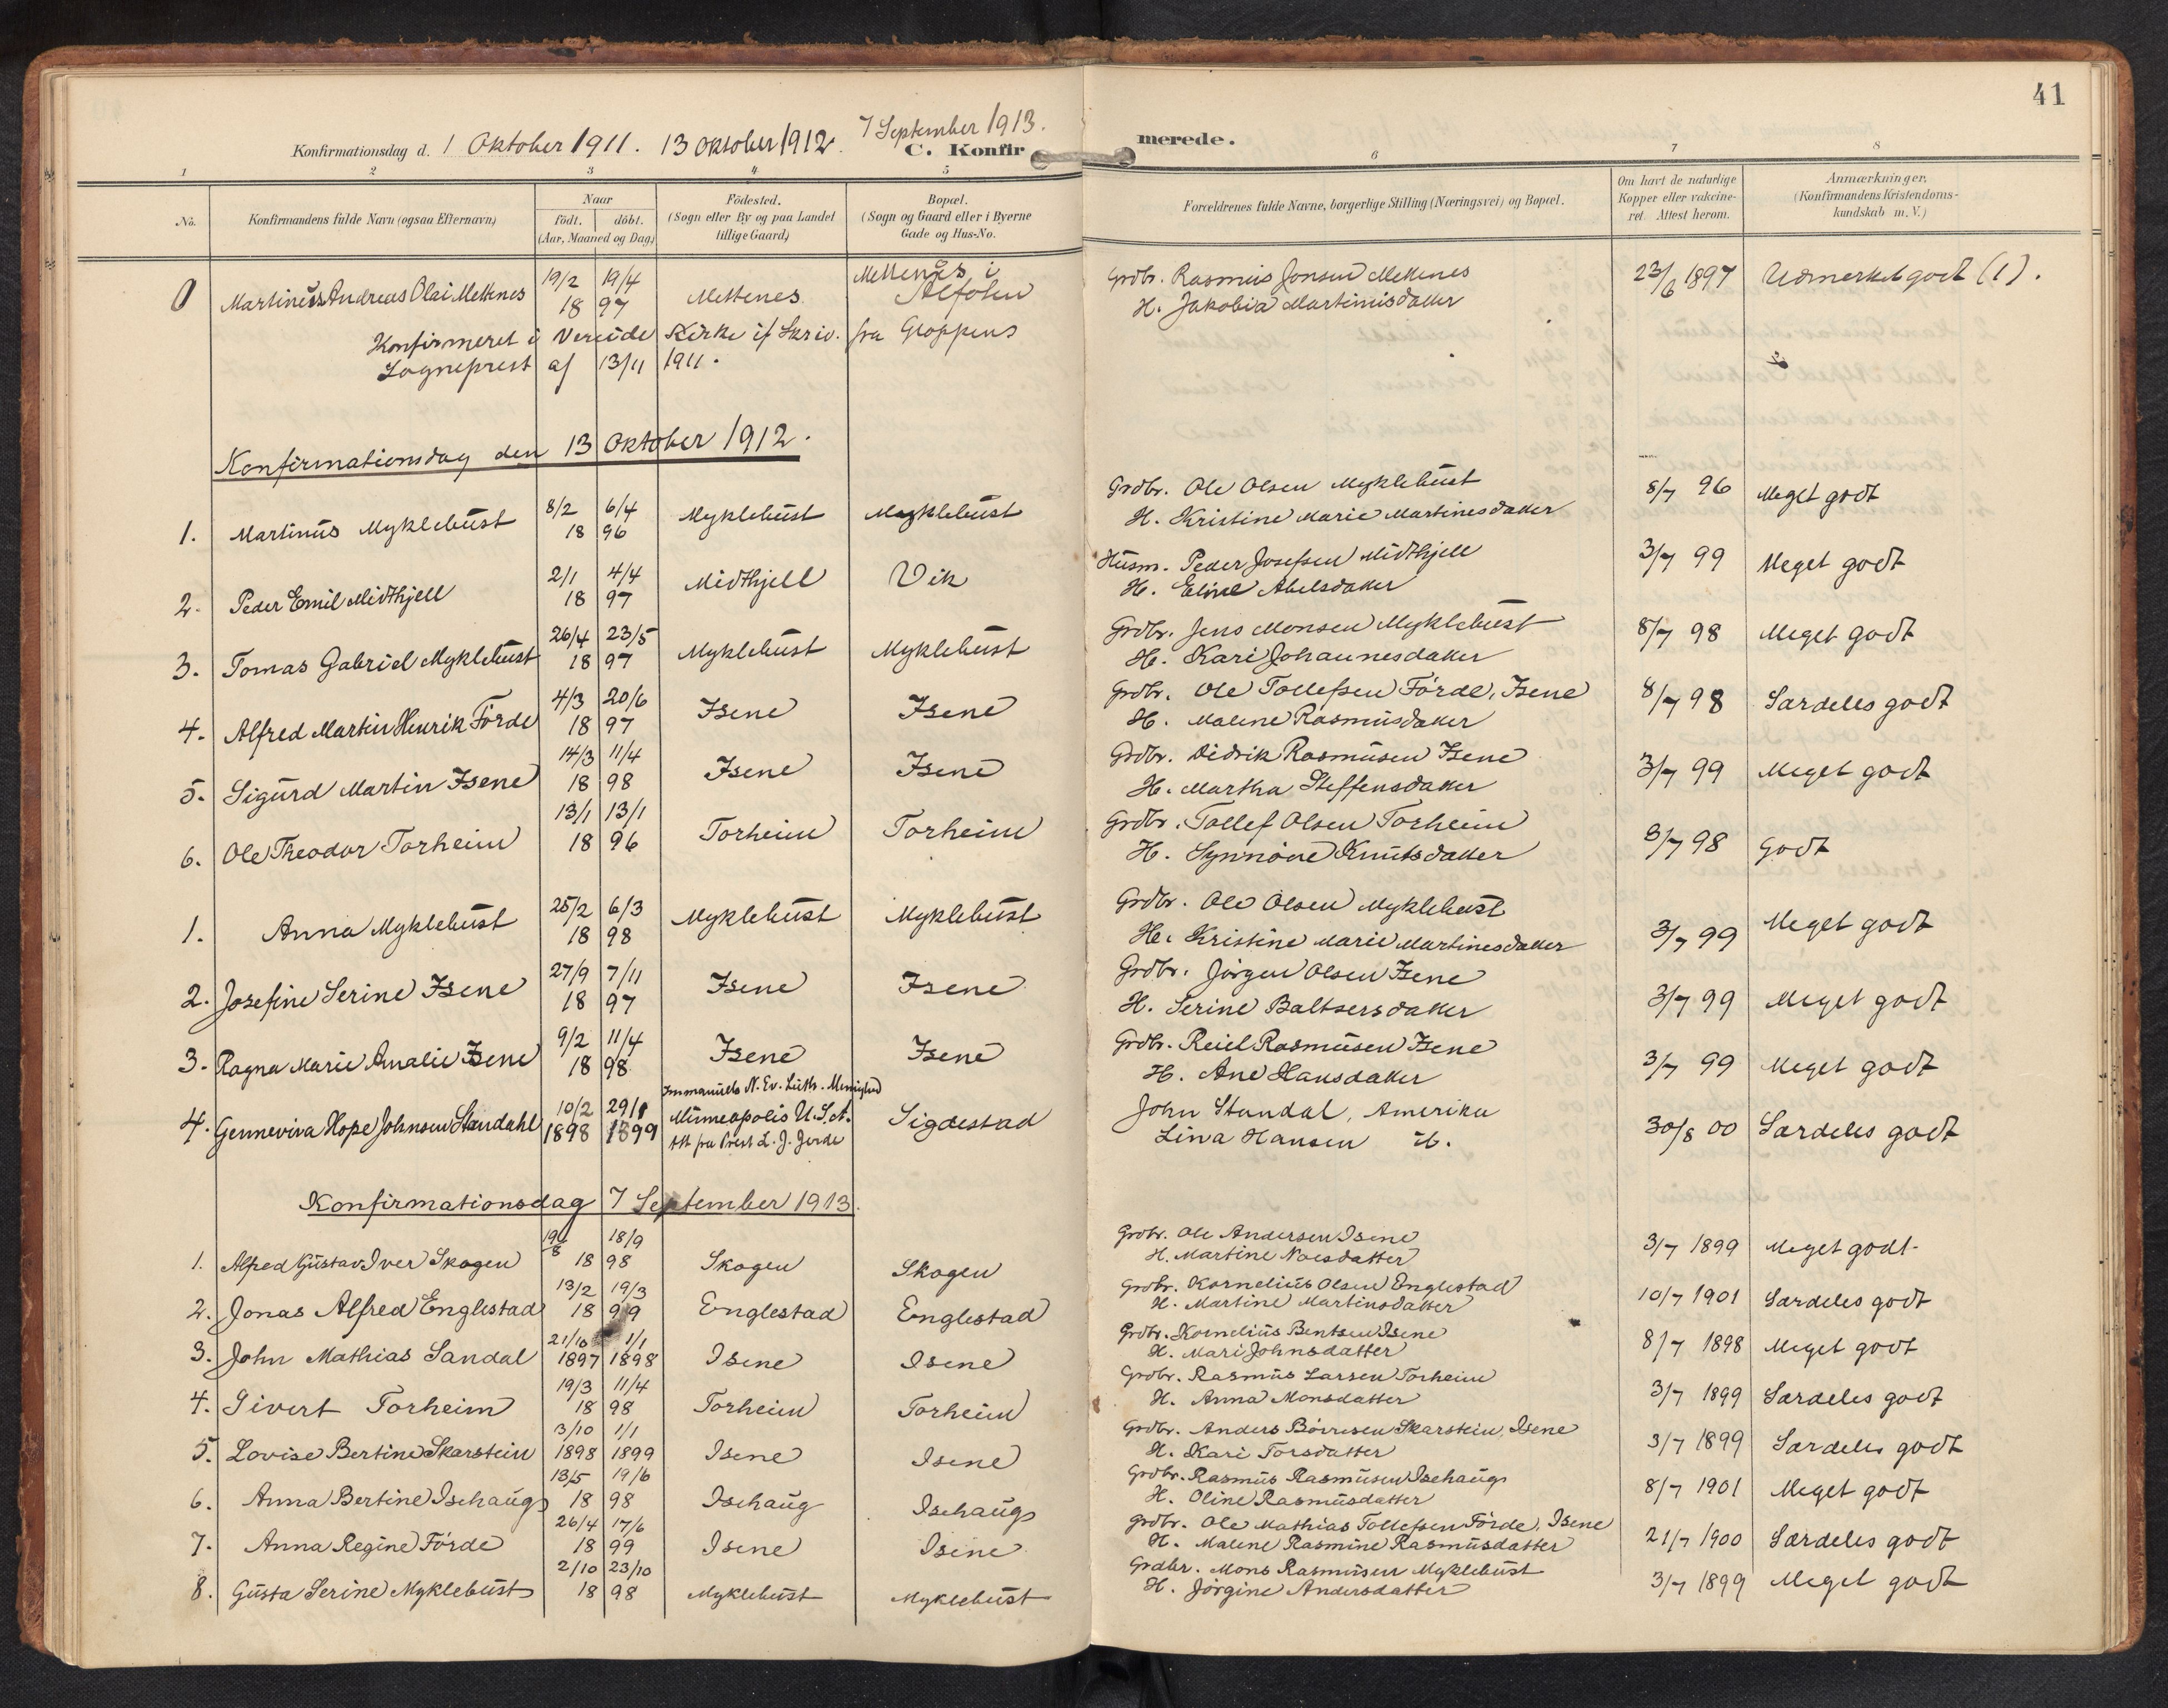 41
Konfirmationsdag d. 1 Oktober 1911. 13 Oktober 1912. 7 September 1913.
C. Konfirmerede.
1 2 3 4 5 6 7 8
No. Konfirmandens fulde Navn (ogsaa Efternavn) Naar født. døbt. (Aar, Maaned og Dag) Fødested. (Sogn eller By og paa Landet tillige Gaard) Bopæl. (Sogn og Gaard eller i Byerne Gade og Hus-No. Forældrenes fulde Navne, borgerlige Stilling (Næringsvei) og Bopæl. Om havt de naturlige Kopper eller vakcineret. Attest herom. Anmærkninger. (Konfirmandens Kristendomskundskab m. V.)
0 Martinus Andreas Olai Mettenes 19/2 19/4 1897 Mettenes Mettenes i Aalfoten Grdbr. Rasmus Jonsen Mettenes
H. Jakobia Martinusdatter 23/6 1897 Udmerket godt (1).
Konfirmeret i Vereide Kirke if Skriv. fra Gloppens
Sogneprest af 13/11 1911.
Konfirmationsdag den 13 Oktober 1912.
1. Martinus Myklebust 8/2 6/4 1896 Myklebust Myklebust Grdbr. Ole Olsen Myklebust
H. Kristine Marie Martinesdatter 8/7 96 Meget godt
2. Peder Emil Midthjell 2/1 4/4 1897 Midthjell Vik Husm. Peder Josefsen Midthjell
H. Eline Abelsdatter 3/7 99 Meget godt
3. Tomas Gabriel Myklebust 26/4 23/5 1897 Myklebust Myklebust Grdbr. Jens Monsen Myklebust
H. Kari Johannesdatter 8/7 98 Meget godt
4. Alfred Martin Henrik Förde 4/3 20/6 1897 Isene Isene Grdbr. Ole Tollefsen Förde, Isene
H. Malene Rasmusdatter 8/7 98 Særdeles godt
5. Sigurd Martin Isene 14/3 11/4 1898 Isene Isene Grdbr. Didrik Rasmusen Isene
H. Martha Steffensdatter 3/7 99 Meget godt
6. Ole Theodor Torheim 13/1 13/1 1896 Torheim Torheim Grdbr. Tollef Olsen Torheim
H. Synnöve Knutsdatter 3/7 98 Godt
1. Anna Myklebust 25/2 6/3 1898 Myklebust Myklebust Grdbr. Ole Olsen Myklebust
H. Kristine Marie Martinesdatter 3/7 99 Meget godt
2. Josefine Serine Isene 27/9 7/11 1897 Isene Isene Grdbr. Jörgen Olsen Isene
H. Serine Baltsersdatter 3/7 99 Meget godt
3. Ragna Marie Amalie Isene 9/2 11/4 1898 Isene Isene Grdbr. Reiel Rasmusen Isene
H. Ane Hansdatter 3/7 99 Meget godt
4. Gennevira Hope Johnsen Standahl 10/2 1898 29/1 1899 Immanuels N. Ev. Luth. Menighed
Minneapolis U.S.A.
Att fra Prest L. J. Jerde Sigdestad John Standal, Amerika
Lina Hansen H. 30/8 00 Særdeles godt
Konfirmationsdag 7 September 1913.
1. Alfred Gustav Iver Skogen 19/8 18/9 1898 Skogen Skogen Grdbr. Ole Andersen Isene
H. Martine Noesdatter 3/7 1899 Meget godt
2. Jonas Alfred Englestad 13/2 19/3 1899 Englestad Englestad Grdbr. Kornelius Olsen Englestad
H. Martine Martinusdatter 10/7 1901 Særdeles godt
3. John Mathias Sandal 21/10 1897 1/1 1898 Isene Isene Grdbr. Kornelius Bentsen Isene
H. Mari Johnsdatter 8/7 1898 Meget godt
4. Sivert Torheim 19/3 11/4 1898 Torheim Torheim Grdbr. Rasmus Larsen Torheim
H. Anna Monsdatter 3/7 1899 Særdeles godt
5. Lovise Bertine Skarstein 3/10 1898 1/1 1899 Isene Isene Grdbr. Anders Börresen Skarstein, Isene
H. Kari Torsdatter 3/7 1899 Særdeles godt
6. Anna Bertine Isehaug 13/5 19/6 1898 Isehaug Isehaug Grdbr. Rasmus Rasmusen Isehaug
H. Oline Rasmusdatter 8/7 1901 Meget godt
7. Anna Regine Förde 26/4 17/6 1899 Isene Isene Grdbr. Ole Mathias Tollefsen Förde, Isene
H. Malene Rasmine Rasmusdatter 21/7 1900 Særdeles godt
8. Gusta Serine Myklebust 2/10 23/10 1898 Myklebust Myklebust Grdbr. Mons Rasmusen Myklebust
H. Jörgine Andersdatter 3/7 1899 Meget godt